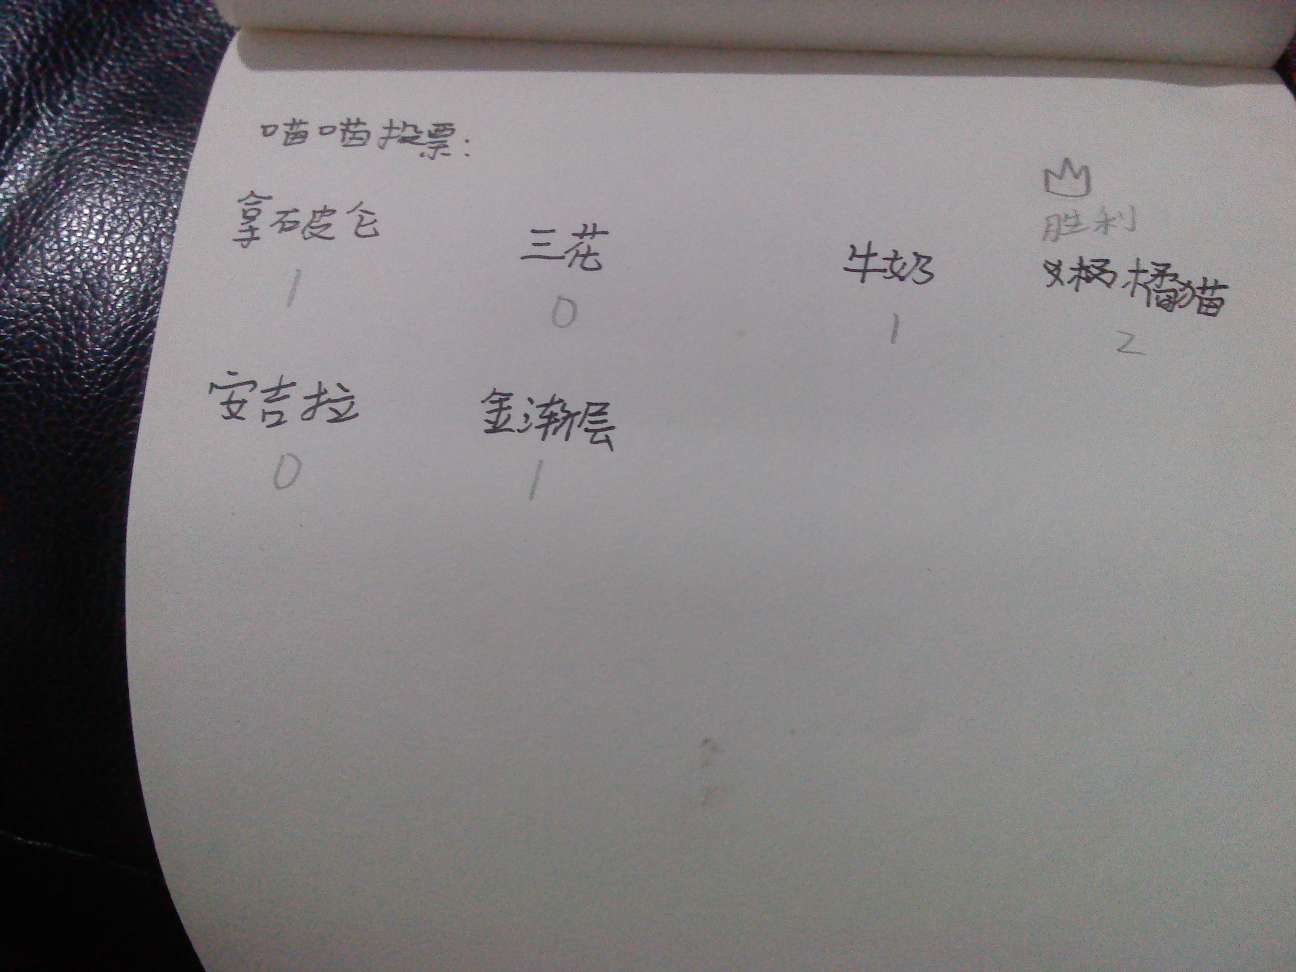 喵喵投票:
胜利
拿破仑 三花 牛奶 橘猫
1 0 1 2
安吉拉 金渐层
0 1